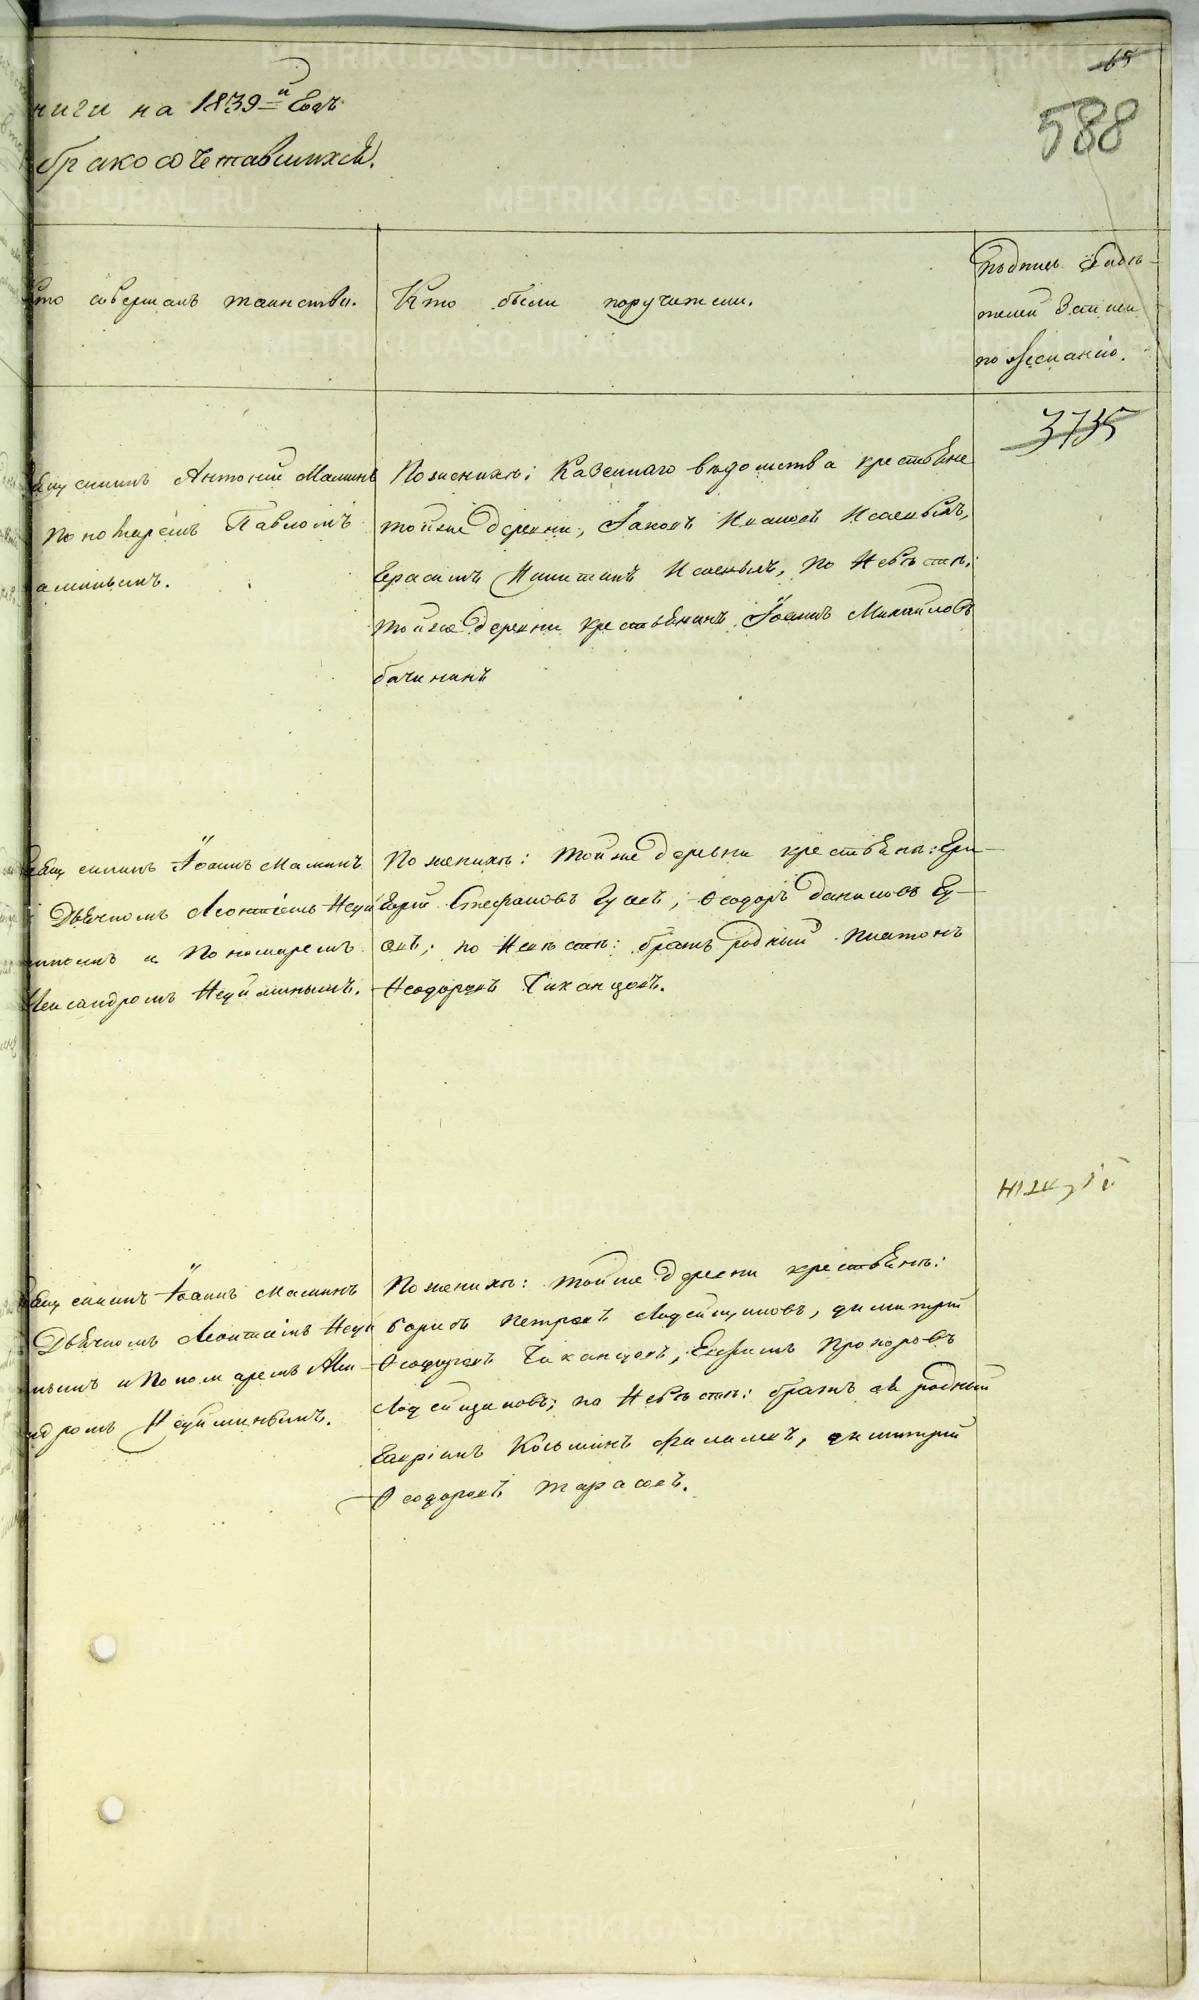 65
588
ниги на 1839й Годъ
бракосочетавшихся.
Кто совершалъ таинство.
Кто были поручители.
Подпись свидѣ-
телей записи
по желанію.
3735
Священникъ Антоній Маминъ
Пономаремъ Павломъ
аминымъ.
По женихѣ: Казеннаго вѣдомства крестьяне
тойже деревни, Іаковъ Ивановъ Исаевыхъ,
Герасимъ Никитинъ Исаевыхъ, по невѣстѣ:
тойже деревни крестьянинъ Іоаннъ Михайловъ
бачининъ
Священникъ Іоаннъ Маминъ
Дьячкомъ Леонтіемъ Неуй
миномъ и Пономаремъ
Александромъ Неуйминымъ.
По женихѣ: тойже деревни крестьяне: Гри
горій Стефановъ Гусевъ, Ѳеодоръ Даниловъ Гу-
севъ; по невѣстѣ: братъ родный Платонъ
Ѳеодоровъ Чиканцовъ.
Священникъ Іоаннъ Маминъ
Дьячкомъ Леонтіемъ Неуй
нымъ и Пономаремъ Але-
ндромъ Неуйминымъ.
По женихѣ: тойже деревни крестьяне:
борисъ Петровъ Лодейщиковъ, димитрій
Ѳеодоровъ Чиканцовъ, Ефимъ Прохоровъ
Лодейщиковъ; по невѣстѣ: братъ ея родный
Гавріилъ Косминъ Филиповъ, димитрій
Ѳеодоровъ Тарасовъ.